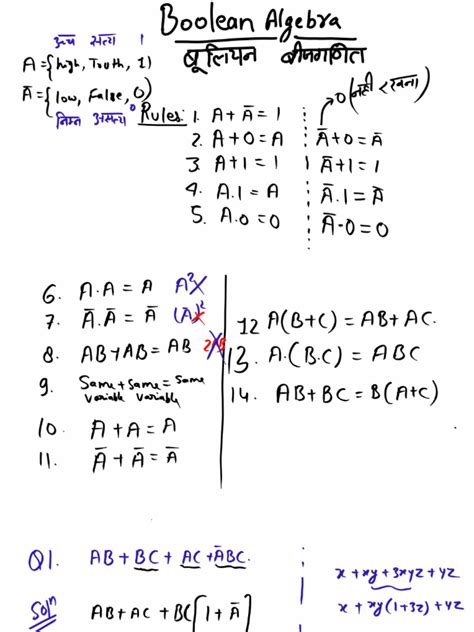 Boolean Algebra
बूलियन बीजगणित
उच्च सत्य 1
A = {high, Truth, 1}
Ā = {low, False, 0}
निम्न असत्य 0
Rules: 1. A + Ā = 1
→ 0 (नहीं
2. A + 0 = A
Ā + 0 = Ā
3. A + 1 = 1
Ā + 1 = 1
4. A.1 = A
Ā.1 = Ā
5. A.0 = 0
Ā.0 = 0
6. A.A = A A²
7. Ā.Ā = Ā (Ā)²
8. AB + AB = AB
9. Same + Same = Same
variable variable
10. A + A = A
11. Ā + Ā = Ā
12 A(B+C) = AB + AC.
13. A.(B.C) = ABC
14. AB + BC = B(A+C)
Q1. AB + BC + AC + ĀBC.
Solⁿ AB + AC + BC[1 + Ā]
x + xy + 3xyz + yz
x + xy(1+3z) + yz